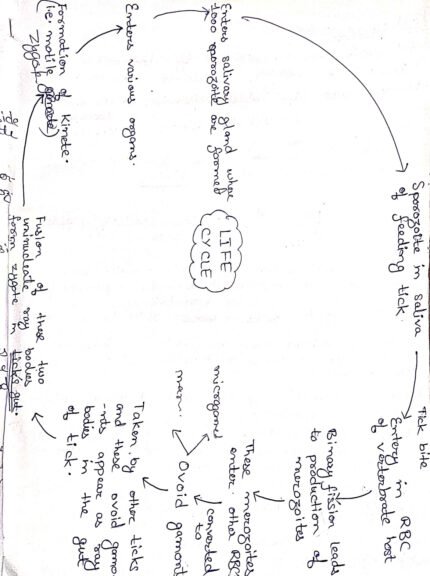 LIFE
CYCLE
Sporozoite in saliva
of feeding tick.
Tick bite
Entery in RBC
of vertebrate host
Binary fission leads
to production of
merozoites
These merozoites
enter other RBC
converted
to
Ovoid gamont
microgamo
macr.
Taken by other ticks
and these ovoid gamo
-nts appear as ray
bodies in the gut
of tick.
Fusion of these two
uninucleate ray bodies
form zygote in tick's gut.
Formation of Kinete.
(i.e. motile gamete)
zygote
Enters various organs.
Enters salivary gland where
1000 sporozoite are formed